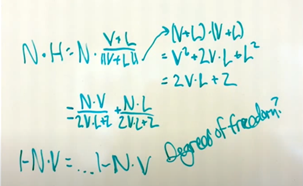 N·H = N · V+L / ||V+L||
(V+L)·(V+L)
= V² + 2V·L + L²
= 2V·L + 2
= N·V / 2V·L+2 + N·L / 2V·L+2
1-N·V = ... 1-N·V
Degrees of freedom?